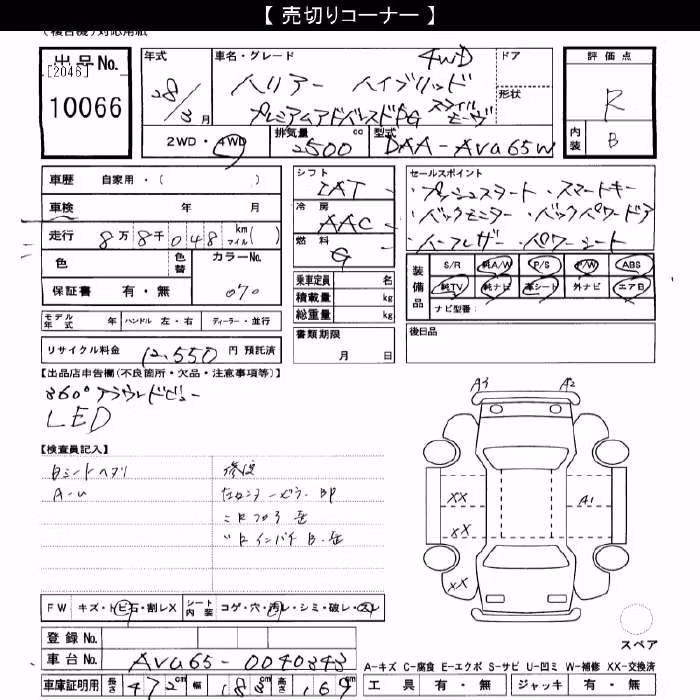 【 売切りコーナー 】
出品No.
[2046]
10066
年式
28/3月
車名・グレード
ドア
形状
4WD
ハリアー ハイブリッド
プレミアムアドバンスドPG スタイルモーヴ
2WD・4WD
排気量 2500 cc
型式 DAA-AVU65W
評価点
R
内装 B
車歴 自家用・( )
車検 年 月
走行 8万8千048 km マイル( )
色 色替 カラーNo. 070
保証書 有・無
シフト IAT
冷房 AAC
燃料 G
乗車定員 名
積載量 kg
総重量 kg
書類期限
月 日
セールスポイント
・プッシュスタート・スマートキー
・バックモニター・バックパワードア
・ハーフレザー・パワーシート
装備品
S/R 純A/W P/S P/W ABS
純TV 純ナビ 革シート 外ナビ エアB
ナビ型番:
後日品
モデル年式 年 ハンドル 左・右 ディーラー・並行
リサイクル料金 12,550 円 預託済
【出品店申告欄(不良箇所・欠品・注意事項等)】
360°アラウンドビュー
LED
【検査員記入】
A-U
修復
FW キズ・トビ石・割レX シート内装 コゲ・穴・汚レ・シミ・破レ・スレ
登録No.
車台No. AVU65-0040343
車庫証明用 長さ 472cm 幅 183cm 高さ 169cm
A3 A2
XX A1
XX
XX
スペア
A-キズ C-腐食 E-エクボ S-サビ U-凹ミ W-補修 XX-交換済
工具 有・無 ジャッキ 有・無